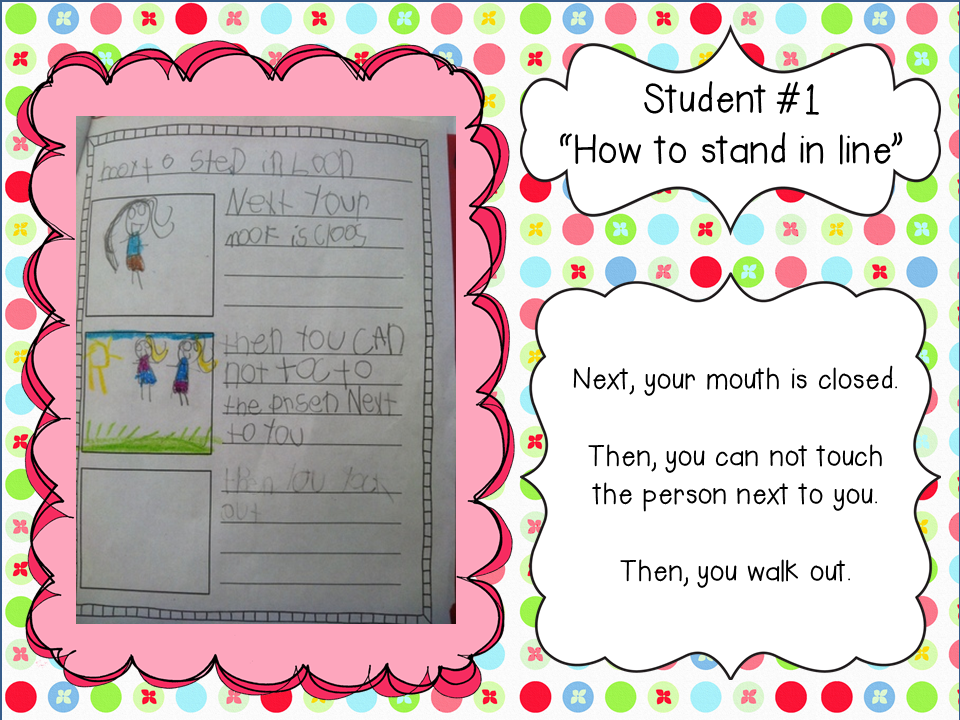 Student #1
“How to stand in line”
to Sted in Loon
Next Your
mook is cloos
then You CAN
not toc to
the prisen Next
to You
then You
out
Next, your mouth is closed.
Then, you can not touch
the person next to you.
Then, you walk out.